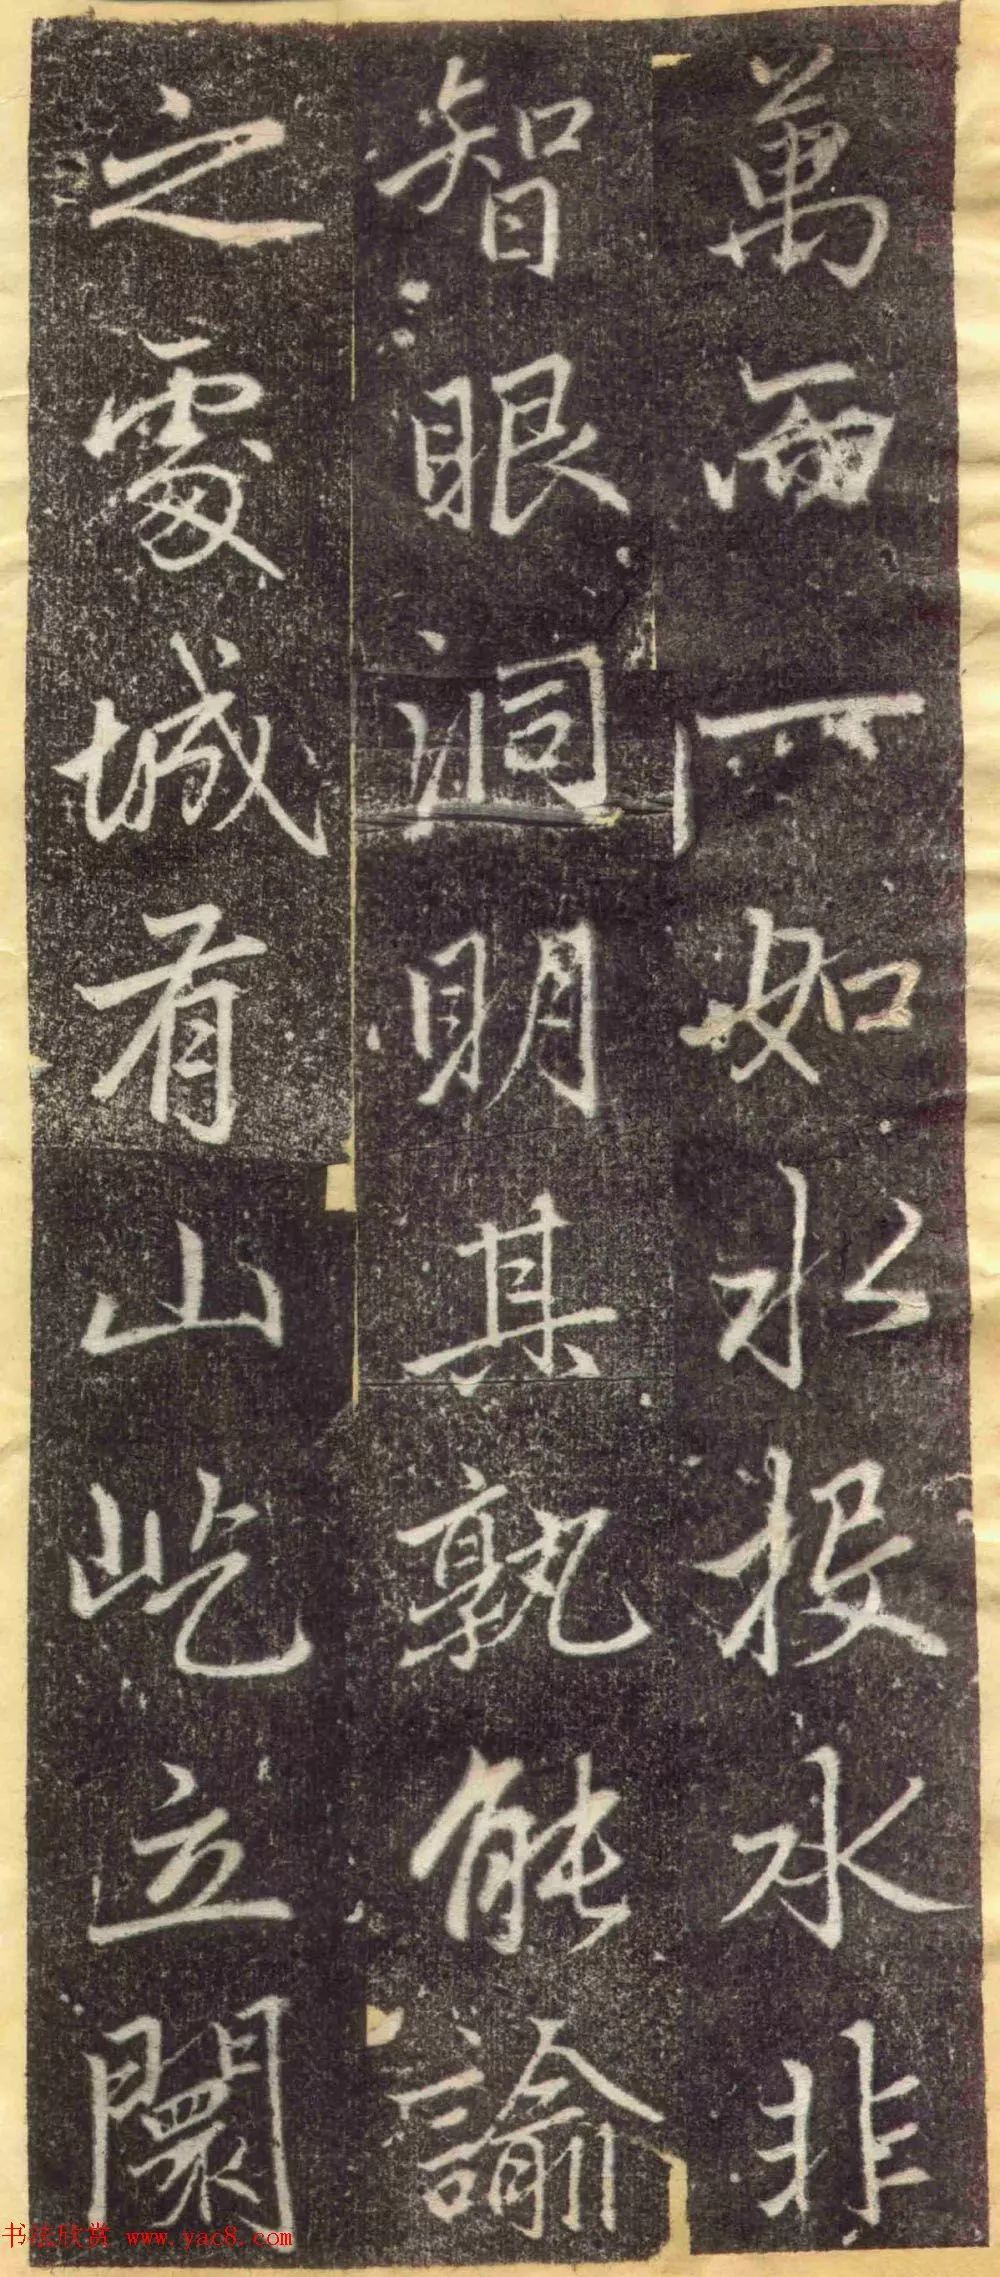 萬而一如水投水非
智眼洞明其孰能諭
之處城有山屹立闤
书法欣赏 www.yac8.com